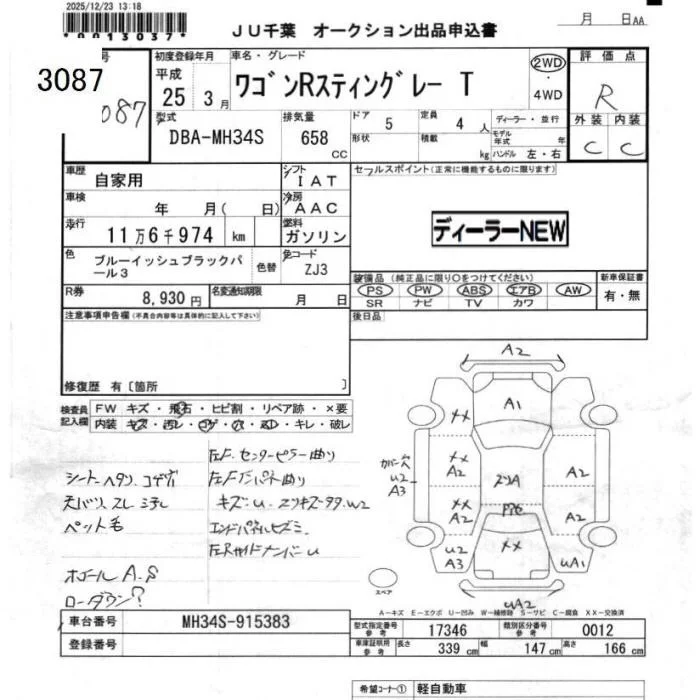 2025/12/23 13:18
*0013037*
JU千葉 オークション出品申込書
月 日AA
号
3087
087
初度登録年月
平成
25 3月
車名・グレード
ワゴンRスティングレー T
2WD
4WD
評価点
R
外装 内装
C C
型式
DBA-MH34S
排気量
658
CC
ドア
5
定員
4 人
形状
積載
kg
ディーラー・並行
モデル年式 年
ハンドル 左・右
車歴
自家用
シフト
IAT
車検
年 月( 日)
冷房
AAC
走行
11万6千974 km
燃料
ガソリン
色
ブルーイッシュブラックパール3
色替
色コード
ZJ3
R券
8,930円
名変通知期限
月 日
セールスポイント(正常に機能するものに限ります)
ディーラーNEW
装備品(純正品に限り○をつけてください)
PS PW ABS エアB AW
SR ナビ TV カワ
新車保証書
有・無
後日品
注意事項申告欄(不具合内容等は具体的に記入して下さい)
修復歴 有〔箇所 〕
検査員記入欄
FW キズ・飛石・ヒビ割・リペア跡・×要
内装 キズ・汚レ・コゲ・穴・スレ・キレ・破レ
シートヘタリ、コゲ穴
天バリ、スレ
ペット毛
ホイールA.S
ローダウン?
左F.センターピラー曲り
キズ・U
エンドパネルヒズミ
A2
A1
XX
XX
A2
XX
A2
カバー穴
U2
A3
A2
A2
XX
U2
A3
UA1
UA2
スペア
A-キズ E-エクボ U-凹み W-補修跡 S-サビ C-腐食 XX-交換済
車台番号
MH34S-915383
登録番号
型式指定番号
参考
17346
類別区分番号
参考
0012
車庫証明用
参考
長さ 339 cm 幅 147 cm 高さ 166 cm
希望コーナー① 軽自動車